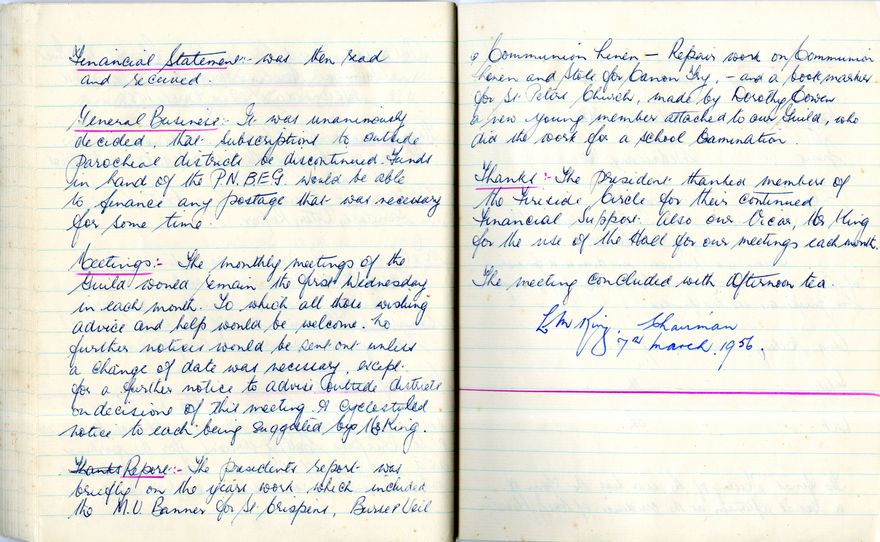 Financial Statement:- was then read
and received.
General Business:- It was unanimously
decided, that subscriptions to outside
Parochial districts be discontinued. Funds
in hand of the P.N.B.E.G. would be able
to finance any postage that was necessary
for some time.
Meetings:- The monthly meetings of the
Guild would remain the first Wednesday
in each month. To which all those wishing
advice and help would be welcome. No
further notices would be sent out unless
a change of date was necessary, except
for a further notice to advise outside districts
on decisions of this meeting. A cyclostyled
notice to each being suggested by Mrs King.
Thanks Report:- The presidents report was
briefly on the years work which included
the M.U. Banner for St Crispens, Burse & Veil
& Communion Linen – Repair work on Communion
Linen and Stole for Canon Fry, – and a bookmarker
for St Peters Church, made by Dorothy
a new young member attached to our Guild, who
did the work for a school Examination.
Thanks:- The President thanked members of
the Fireside Circle for their continued
Financial Support. Also our Vicar, Mr King
for the use of the Hall for our meetings each month.
The meeting concluded with afternoon tea.
King. Chairman
7th March. 1956.